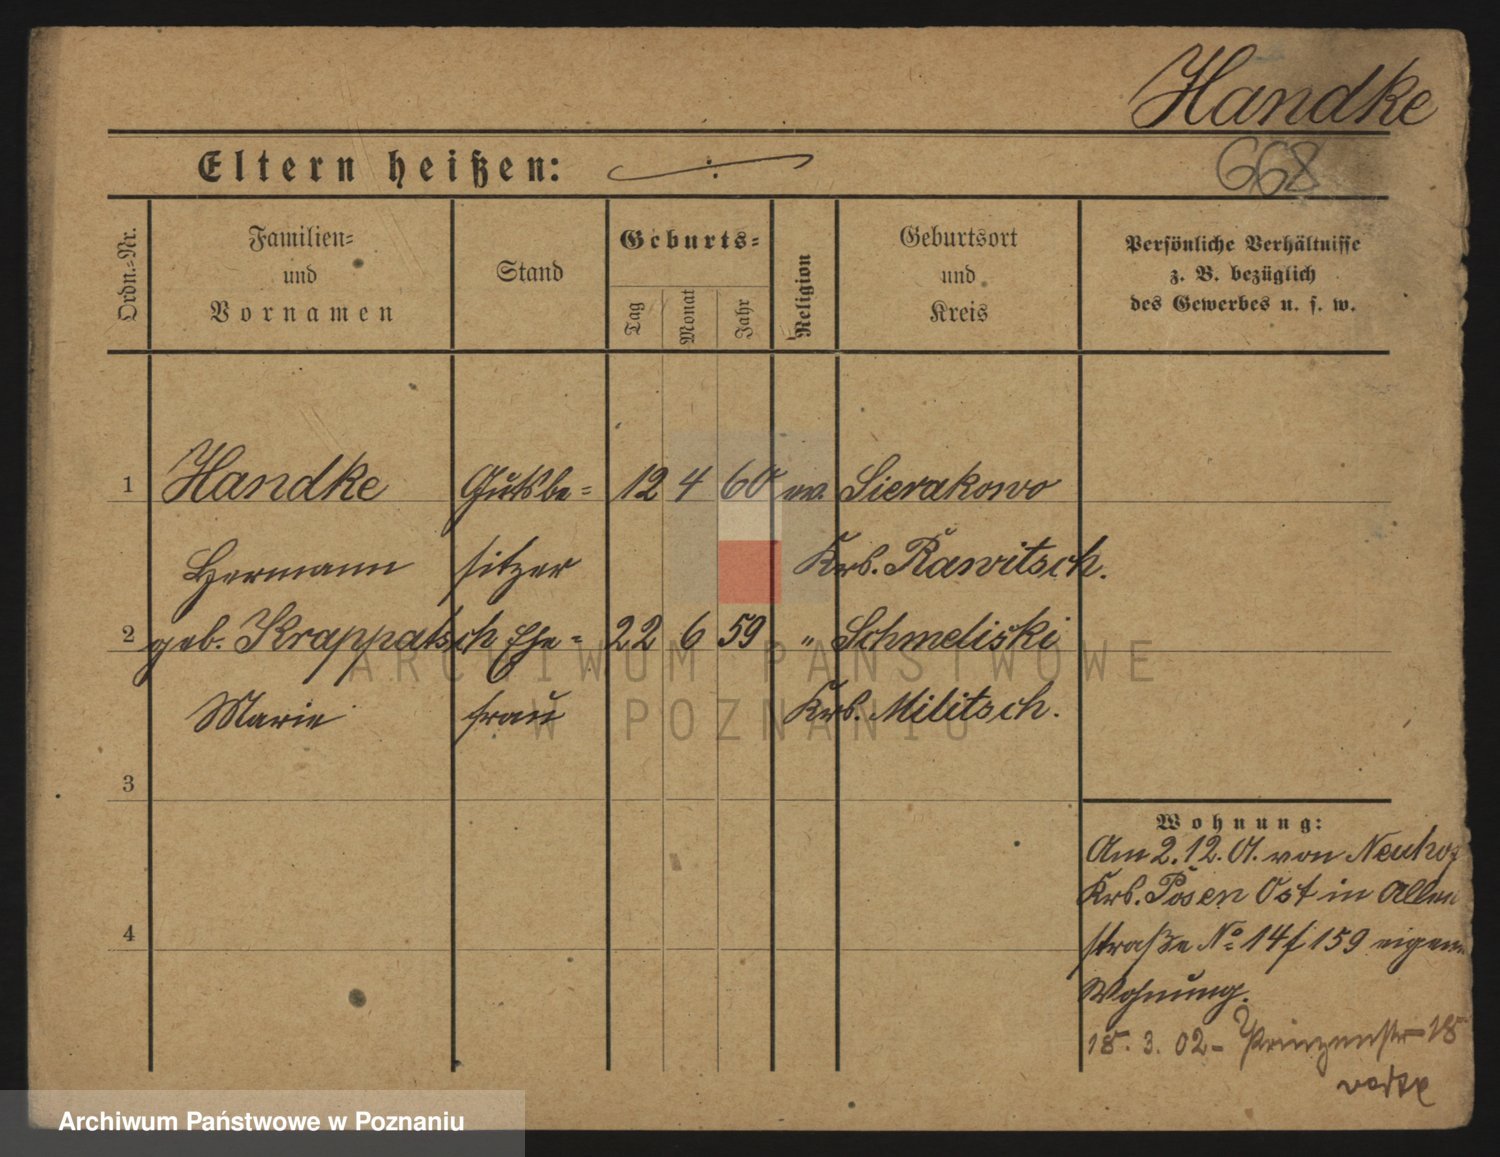 Handke
Eltern heißen: ·/·
668
Ordn.-Nr.
Familien-
und
Vornamen
Stand
Geburts-
Tag
Monat
Jahr
Religion
Geburtsort
und
Kreis
Persönliche Verhältnisse
z. B. bezüglich
des Gewerbes u. s. w.
1 Handke Gutsbe- 12 4 60 ev. Sierakowo
Hermann sitzer Krs. Rawitsch.
2 geb. Krappatsch Ehe- 22 6 59 " Schmeliski
Marie frau Krs. Militsch.
3
4
Wohnung:
Am 2.12.01. von Neuhof
Krs. Posen Ost in Allee
straße No 14/159 eigene
Wohnung.
18. 3. 02 - Prinzenstr 18
ARCHIWUM PAŃSTWOWE
W POZNANIU
Archiwum Państwowe w Poznaniu